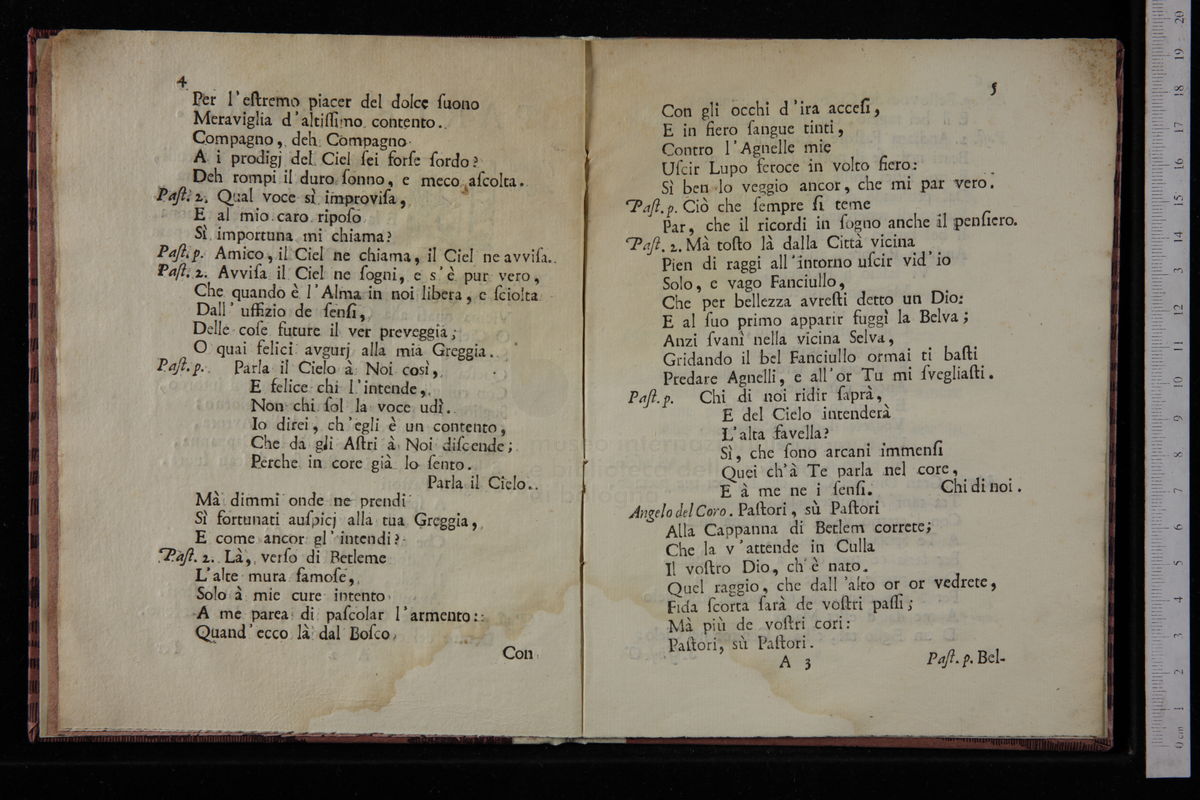 4
Per l'eſtremo piacer del dolce ſuono
Meraviglia d'altiſſimo contento.
Compagno, deh Compagno
A i prodigj del Ciel ſei forſe ſordo?
Deh rompi il duro ſonno, e meco aſcolta.
Paſt. 2. Qual voce sì improviſa,
E al mio caro ripoſo
Sì importuna mi chiama?
Paſt. p. Amico, il Ciel ne chiama, il Ciel ne avviſa.
Paſt. 2. Avviſa il Ciel ne ſogni, e s'è pur vero,
Che quando è l'Alma in noi libera, e ſciolta
Dall' uffizio de ſenſi,
Delle coſe future il ver preveggia;
O quai felici avgurj alla mia Greggia.
Paſt. p. Parla il Cielo à Noi così,
E felice chi l'intende,
Non chi ſol la voce udì.
Io direi, ch'egli è un contento,
Che da gli Aſtri à Noi diſcende;
Perche in core già lo ſento.
Parla il Cielo.
Mà dimmi onde ne prendi
Sì fortunati auſpicj alla tua Greggia,
E come ancor gl'intendi?
Paſt. 2. Là, verſo di Betleme
L'alte mura famoſe,
Solo à mie cure intento
A me parea di paſcolar l'armento:
Quand'ecco là dal Boſco
Con
5
Con gli occhi d'ira acceſi,
E in fiero ſangue tinti,
Contro l'Agnelle mie
Uſcir Lupo feroce in volto fiero:
Sì ben lo veggio ancor, che mi par vero.
Paſt. p. Ciò che ſempre ſi teme
Par, che il ricordi in ſogno anche il penſiero.
Paſt. 2. Mà toſto là dalla Città vicina
Pien di raggi all'intorno uſcir vid'io
Solo, e vago Fanciullo,
Che per bellezza avreſti detto un Dio:
E al ſuo primo apparir fuggì la Belva;
Anzi ſvanì nella vicina Selva,
Gridando il bel Fanciullo ormai ti baſti
Predare Agnelli, e all'or Tu mi ſvegliaſti.
Paſt. p. Chi di noi ridir ſaprà,
E del Cielo intenderà
L'alta favella?
Sì, che ſono arcani immenſi
Quei ch'à Te parla nel core,
E à me ne i ſenſi. Chi di noi.
Angelo del Coro. Paſtori, sù Paſtori
Alla Cappanna di Betlem correte;
Che la v'attende in Culla
Il voſtro Dio, ch'è nato.
Quel raggio, che dall'alto or or vedrete,
Fida ſcorta ſarà de voſtri paſſi;
Mà più de voſtri cori:
Paſtori, sù Paſtori.
A 3 Paſt. p. Bel-